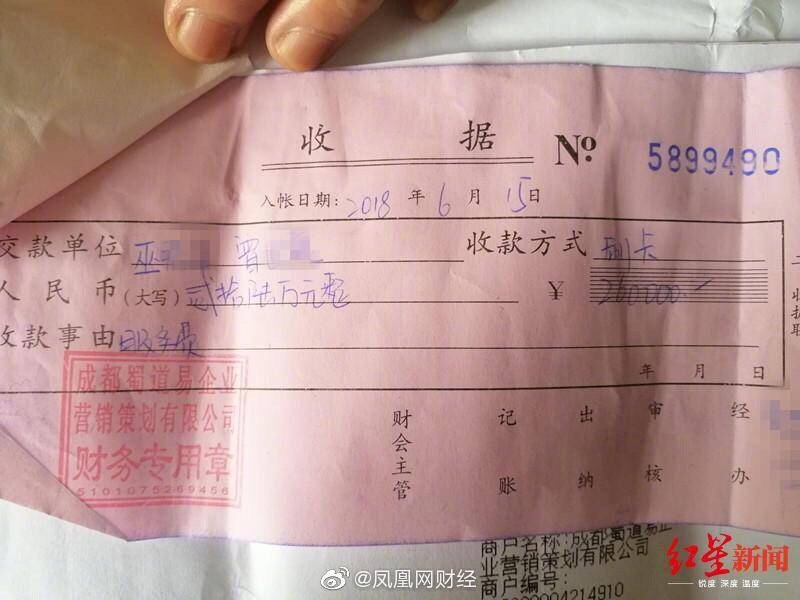 收据 № 5899490
入帐日期: 2018 年 6 月 15 日
交款单位 巫 曾 收款方式 刷卡
人民币(大写) 贰拾陆万元整 ¥ 260000
收款事由 服务费
年 月 日
成都蜀道易企业
营销策划有限公司
财务专用章
5101075269456
财会主管 记账 出纳 审核 经办
收据联
商户名称:成都蜀道易企
业营销策划有限公司
商户编号:
@凤凰网财经
红星新闻
锐度 深度 温度